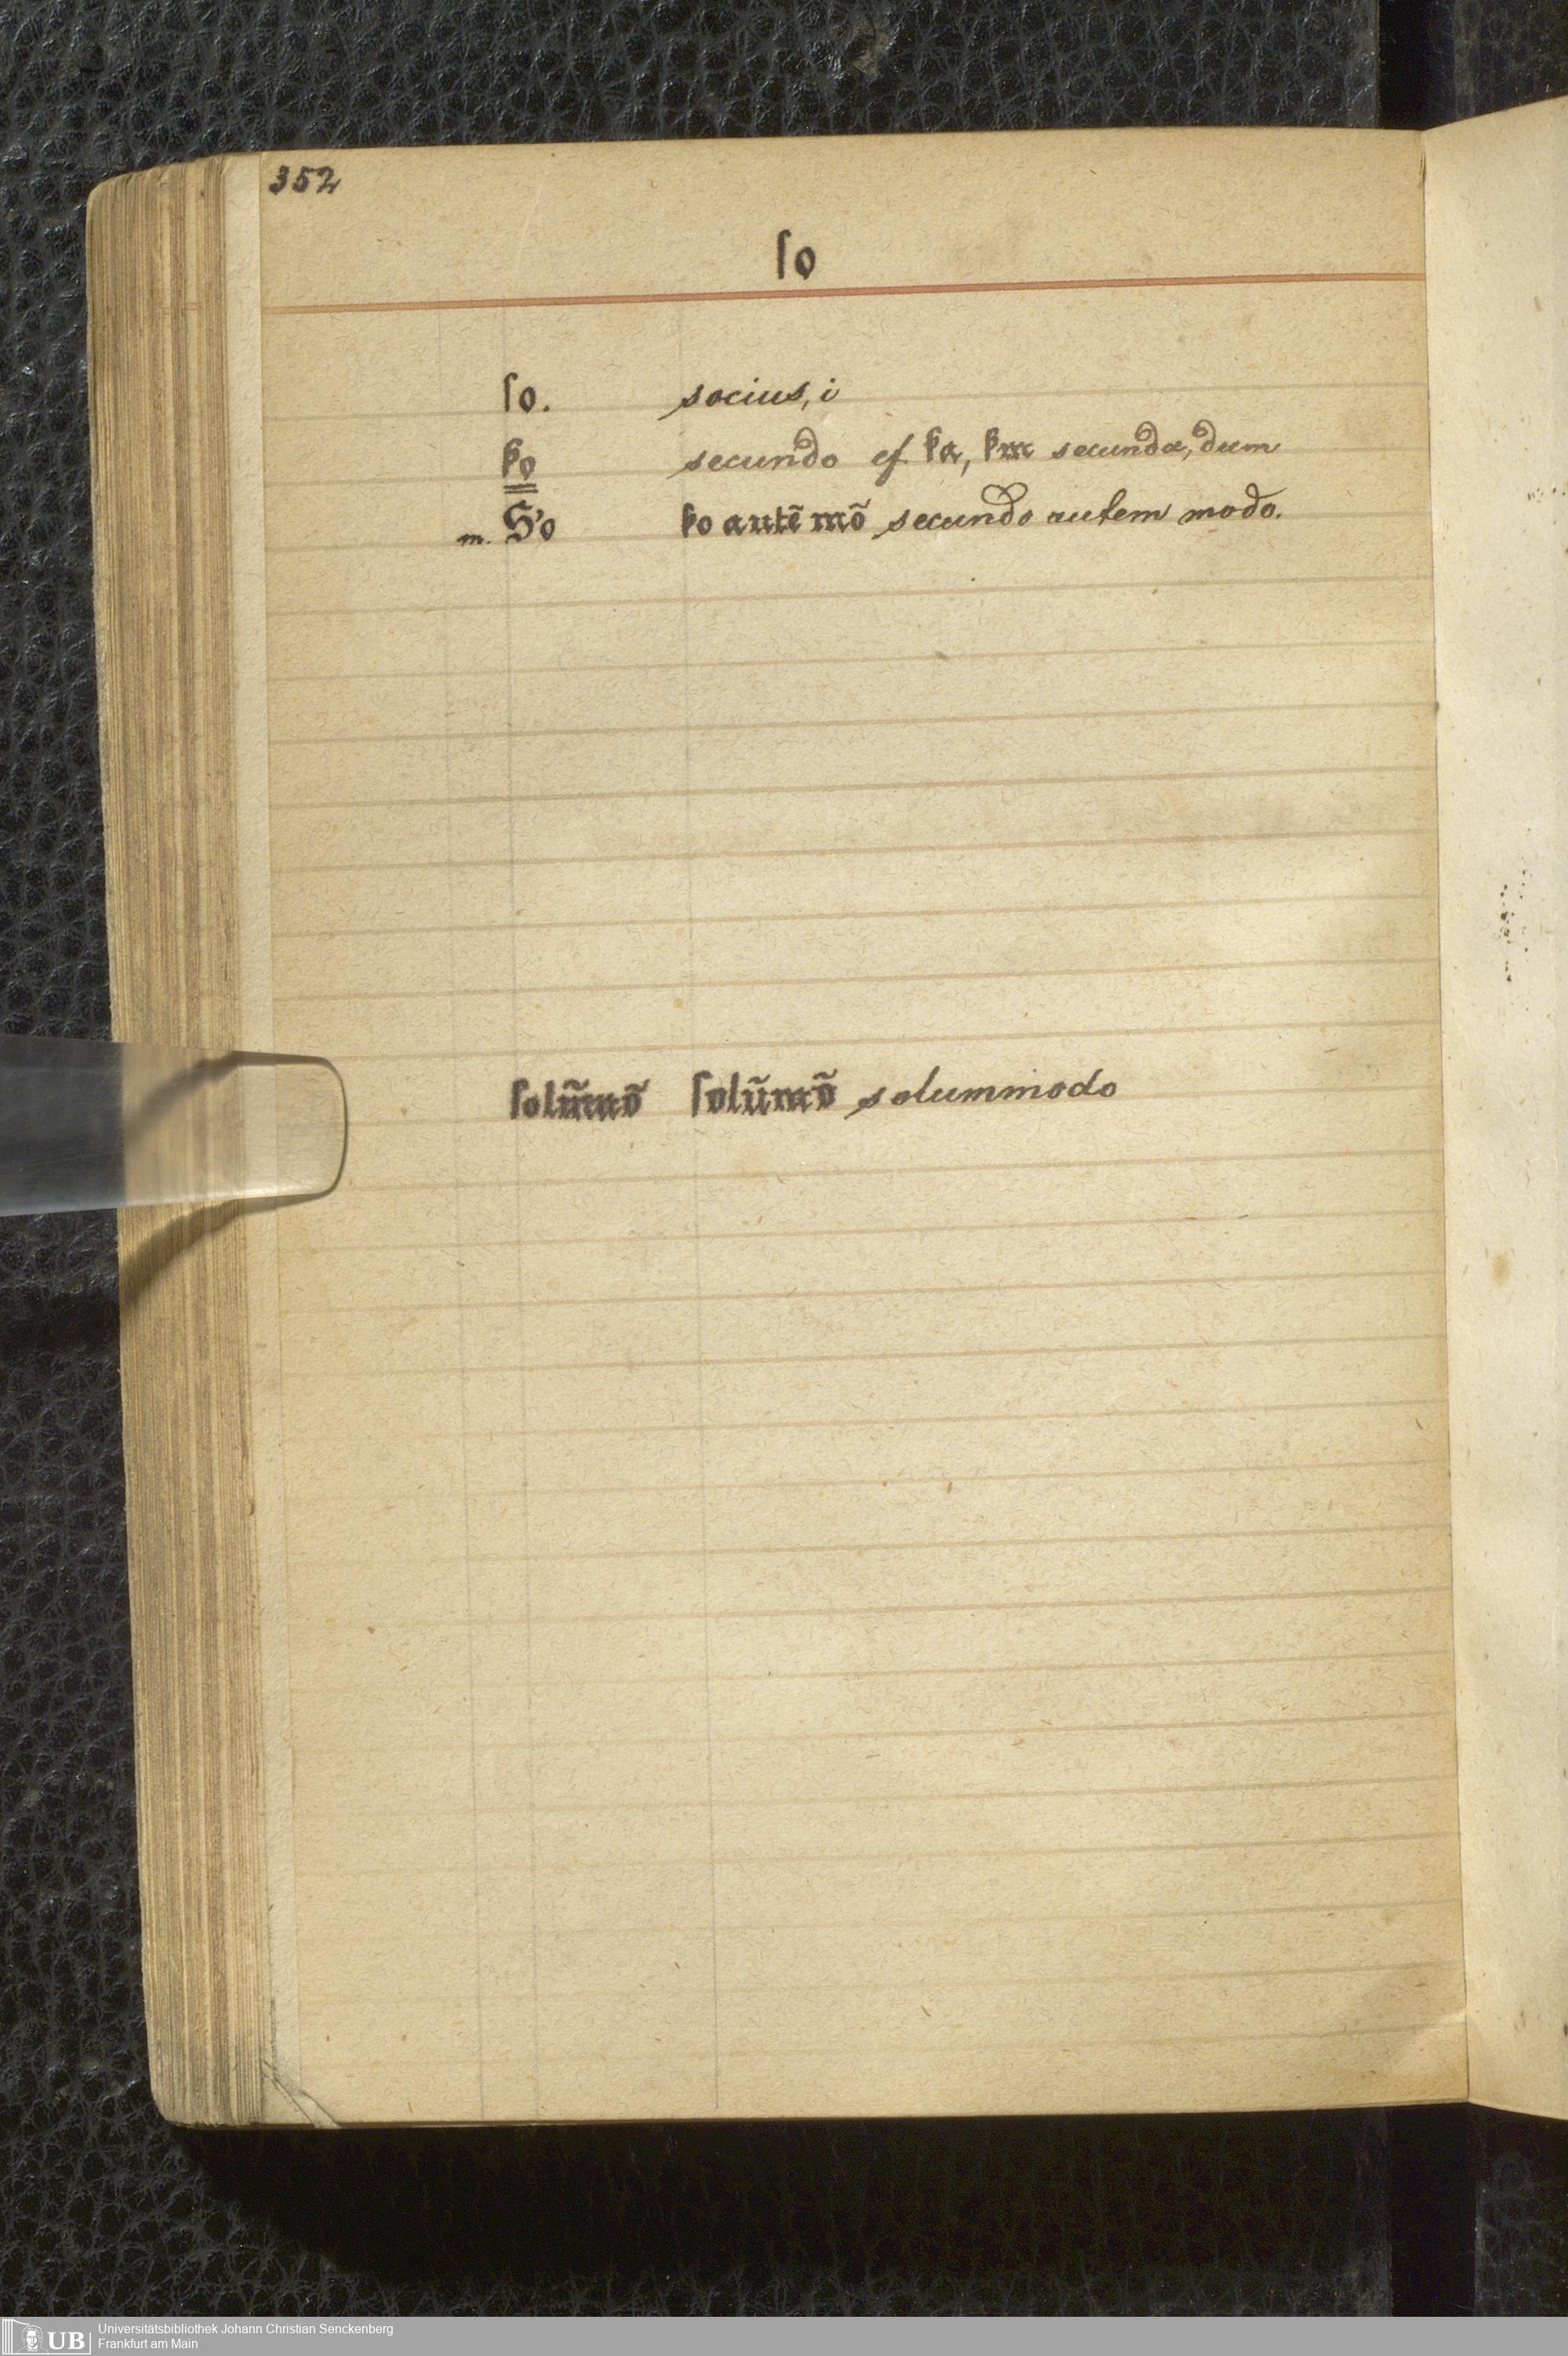 352
ſo
ſo. socius, i
Ꝭo secundo cf. ẜa, ẜm secunda, dum
m. S'o ẜo autē mō secundo autem modo.
ſolũmõ ſolũmõ solummodo
UB Universitätsbibliothek Johann Christian Senckenberg
Frankfurt am Main